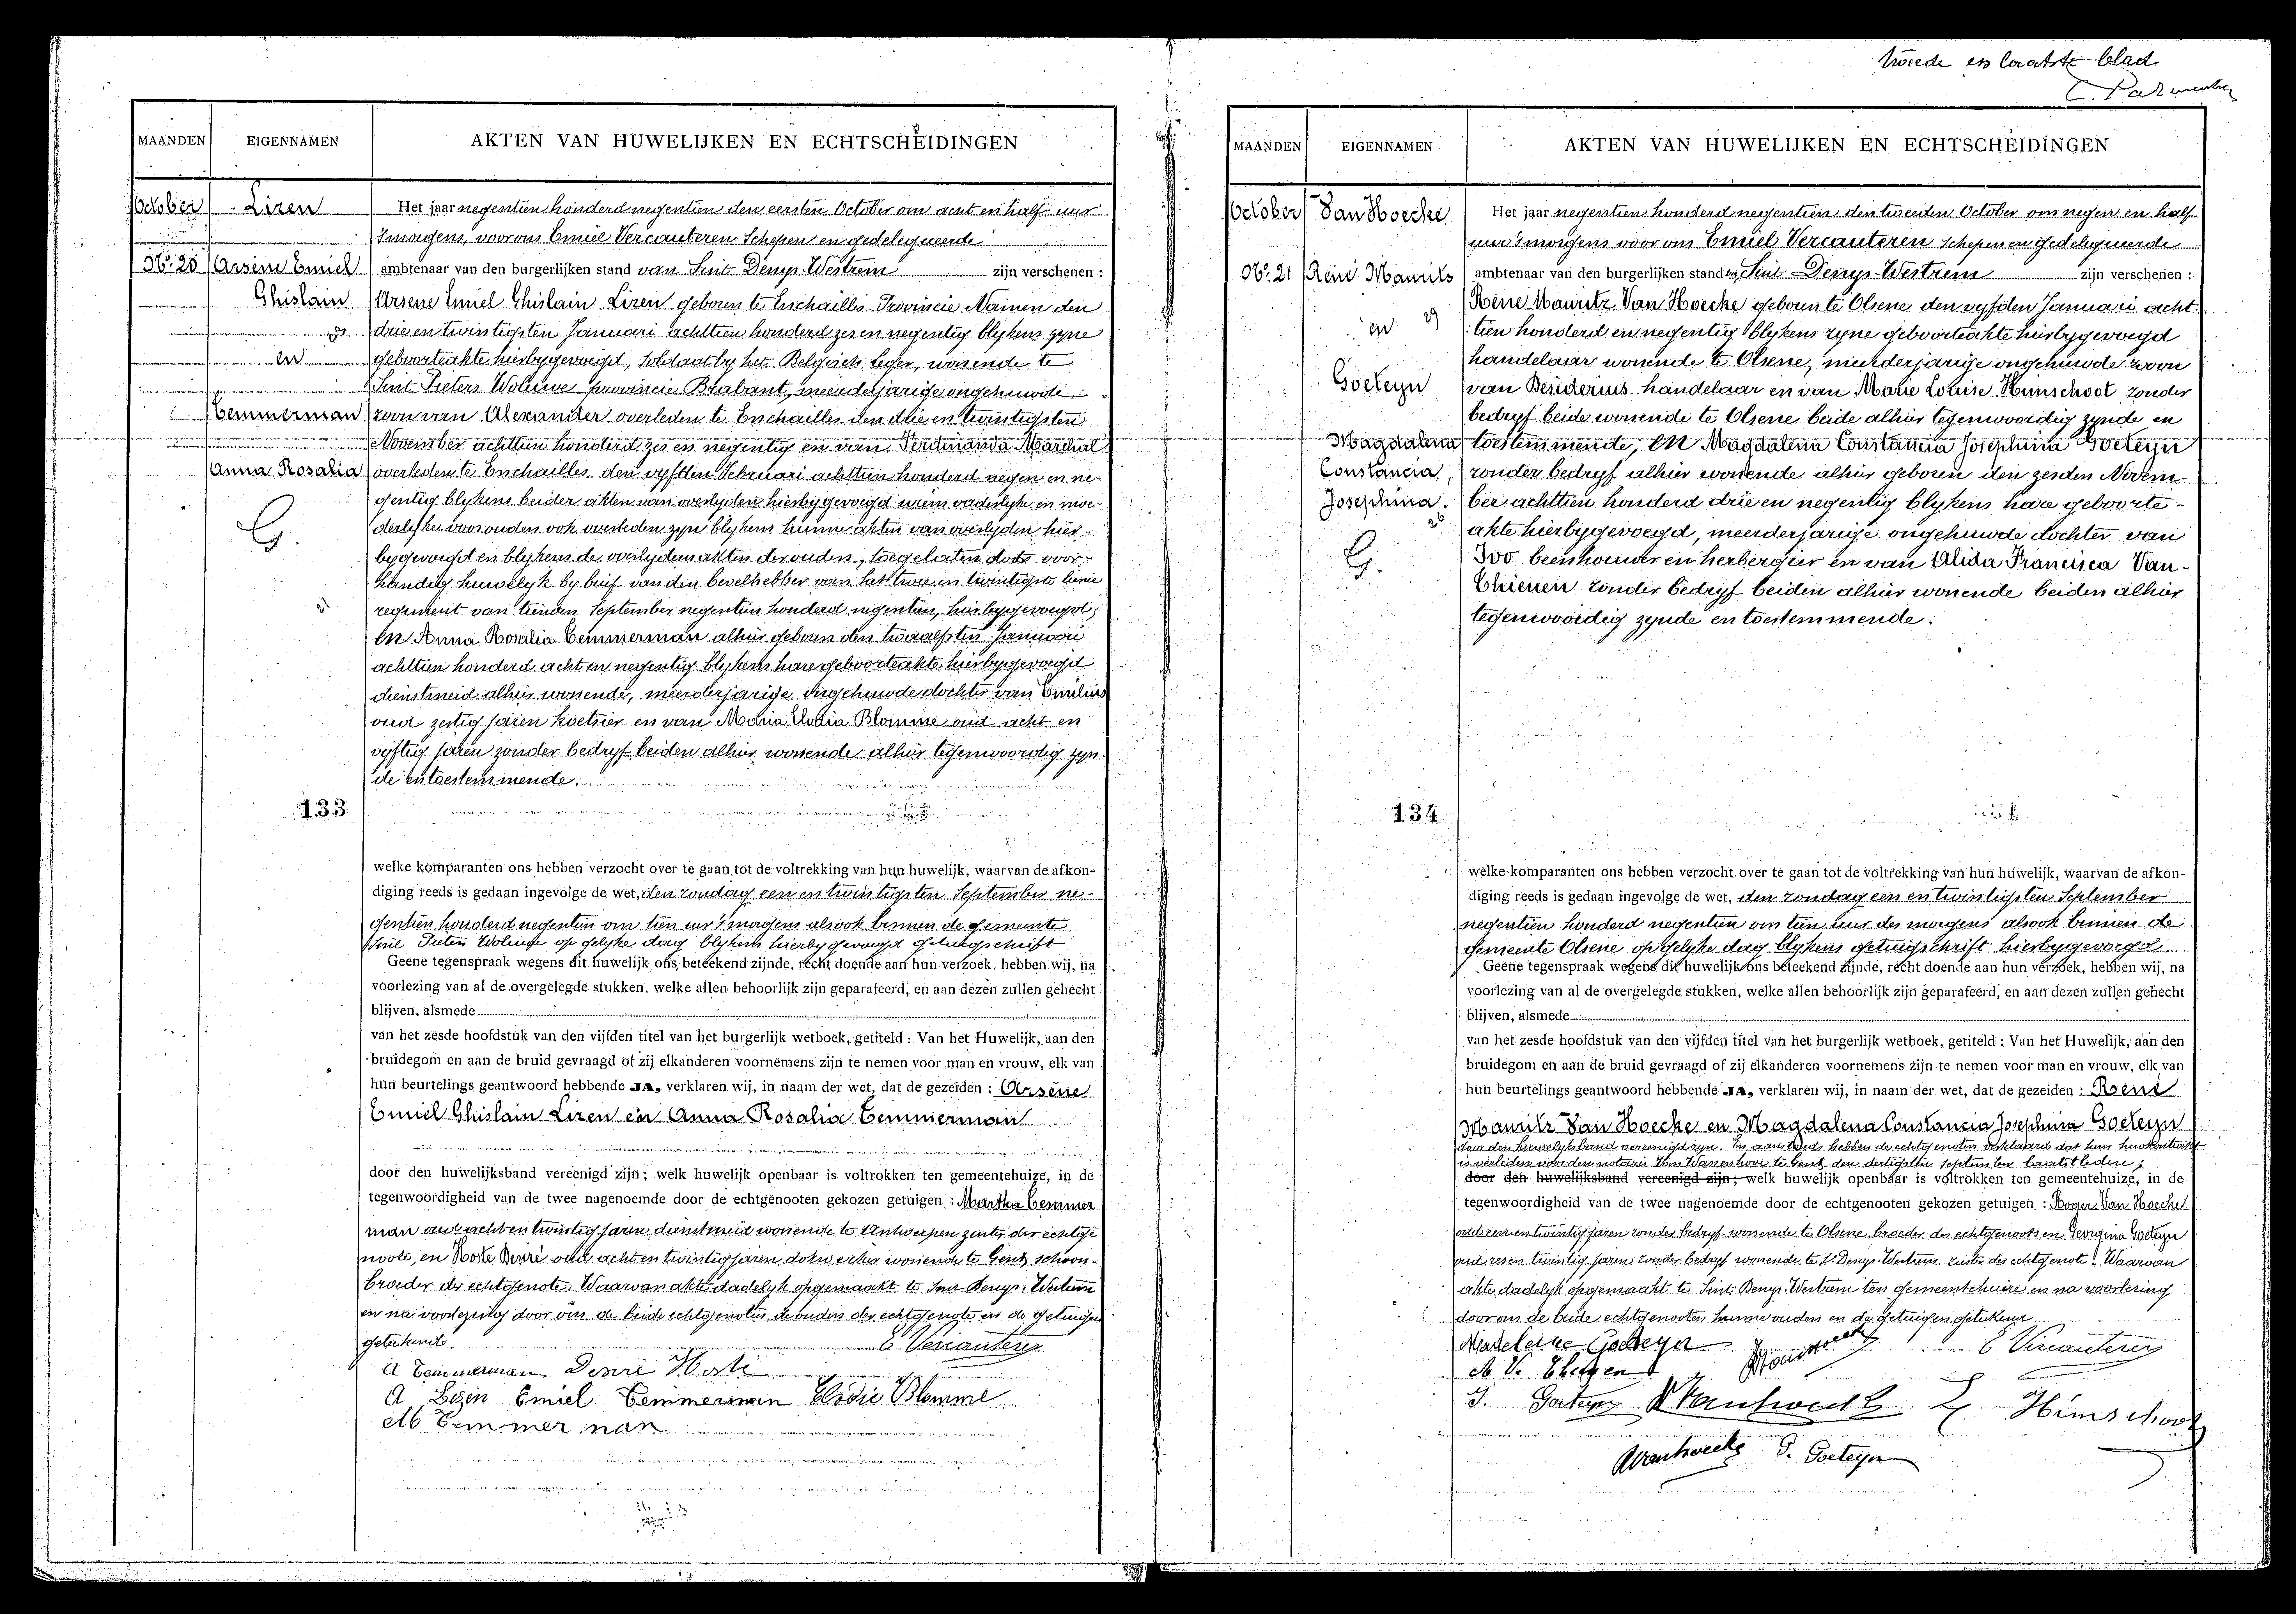 twede en laatste blad
MAANDEN
EIGENNAMEN
AKTEN VAN HUWELIJKEN EN ECHTSCHEIDINGEN
October
Lizen
No. 20
Arsène Emiel
Ghislain
en
Temmerman
Anna Rosalia
G.
133
Het jaar negentien honderd negentien den eersten October om acht en half uur
's morgens, voor ons Emiel Vercauteren Schepen en gedelegueerde
ambtenaar van den burgerlijken stand van Sint Denys-Westrem zijn verschenen :
Arsene Emiel Ghislain Lizen geboren te Enschaille Provincie Namen den
drie en twintigsten Januari achttien honderd zes en negentig blykens zyne
geboorteakte hierbygevoegd, soldaat by het Belgisch leger, wonende te
Sint Pieters Woluwe provincie Brabant, meerderjarige ongehuwde
zoon van Alexander overleden te Enschaille den drie en twintigsten
November achttien honderd zes en negentig en van Ferdinanda Marchal
overleden te Enschaille den vyfden Februari achttien honderd negen en ne-
gentig blykens beider akten van overlyden hierbygevoegd wiens vaderlyke en moe-
derlyke voorouders ook overleden zyn blykens hunne akten van overlyden hier-
bygevoegd en blykens de overlydensakten der ouders, toegelaten door voor-
handig huwelyk by brief van den bevelhebber van het twee en twintigste linie
regiment van tienden September negentien honderd negentien, hierbygevoegd;
en Anna Rosalia Temmerman alhier geboren den twaalfsten Januari
achttien honderd acht en negentig blykens hare geboorteakte hierbygevoegd
dienstmeid alhier wonende, meerderjarige ongehuwde dochter van Emilius
oud zestig jaren koetsier en van Maria Elodia Blomme oud acht en
vyftig jaren zonder bedryf beiden alhier wonende alhier tegenwoordig zyn-
de en toestemmende.
welke komparanten ons hebben verzocht over te gaan tot de voltrekking van hun huwelijk, waarvan de afkon-
diging reeds is gedaan ingevolge de wet, den zondag een en twintigsten September ne-
gentien honderd negentien om tien uur 's morgens alsook binnen de gemeente
Sint Pieters Woluwe op gelyke dag blykens hierby gevoegd getuigschrift
Geene tegenspraak wegens dit huwelijk ons beteekend zijnde, recht doende aan hun verzoek, hebben wij, na
voorlezing van al de overgelegde stukken, welke allen behoorlijk zijn geparafeerd, en aan dezen zullen gehecht
blijven, alsmede
van het zesde hoofdstuk van den vijfden titel van het burgerlijk wetboek, getiteld : Van het Huwelijk, aan den
bruidegom en aan de bruid gevraagd of zij elkanderen voornemens zijn te nemen voor man en vrouw, elk van
hun beurtelings geantwoord hebbende JA, verklaren wij, in naam der wet, dat de gezeiden : Arsène
Emiel Ghislain Lizen en Anna Rosalia Temmerman
door den huwelijksband vereenigd zijn ; welk huwelijk openbaar is voltrokken ten gemeentehuize, in de
tegenwoordigheid van de twee nagenoemde door de echtgenooten gekozen getuigen : Martha Temmer
man oud acht en twintig jaren dienstmeid wonende te Antwerpen zuster der echtge
noote, en Hoste Desiré oud acht en twintig jaren, dokwerker wonende te Gent, schoon-
broeder der echtgenote. Waarvan akte dadelyk opgemaakt te Sint Denys-Westrem
en na voorlezing door ons de beide echtgenoten de ouders der echtgenote en de getuigen
geteekend. E Vercauteren
A Temmerman Desiré Hoste
A Lizen Emiel Temmerman Elodie Blomme
M Temmerman
MAANDEN
EIGENNAMEN
AKTEN VAN HUWELIJKEN EN ECHTSCHEIDINGEN
October
Van Hoecke
No. 21
René Maurits
en
Goeteyn
Magdalena
Constancia,
Josephina.
G.
134
Het jaar negentien honderd negentien den tweeden October om negen en half
uur 's morgens voor ons Emiel Vercauteren schepen en gedelegueerde
ambtenaar van den burgerlijken stand van Sint Denys-Westrem zijn verschenen :
Rene Maurits Van Hoecke geboren te Olsene den vyfden Januari acht
tien honderd en negentig blykens zyne geboorteakte hierbygevoegd
handelaar wonende te Olsene, meerderjarige ongehuwde zoon
van Desiderius handelaar en van Marie Louise Himschoot zonder
bedryf beide wonende te Olsene beide alhier tegenwoordig zynde en
toestemmende, en Magdalena Constancia Josephina Goeteyn
zonder bedryf alhier wonende alhier geboren den zesden Novem-
ber achttien honderd drie en negentig blykens hare geboorte-
akte hierbygevoegd, meerderjarige ongehuwde dochter van
Ivo beenhouwer en herbergier en van Alida Francisca Van-
Thienen zonder bedryf beiden alhier wonende beiden alhier
tegenwoordig zynde en toestemmende.
welke komparanten ons hebben verzocht over te gaan tot de voltrekking van hun huwelijk, waarvan de afkon-
diging reeds is gedaan ingevolge de wet, den zondag een en twintigsten September
negentien honderd negentien om tien uur des morgens alsook binnen de
gemeente Olsene op gelyke dag blykens getuigschrift hierbygevoegd.
Geene tegenspraak wegens dit huwelijk ons beteekend zijnde, recht doende aan hun verzoek, hebben wij, na
voorlezing van al de overgelegde stukken, welke allen behoorlijk zijn geparafeerd, en aan dezen zullen gehecht
blijven, alsmede
van het zesde hoofdstuk van den vijfden titel van het burgerlijk wetboek, getiteld : Van het Huwelijk, aan den
bruidegom en aan de bruid gevraagd of zij elkanderen voornemens zijn te nemen voor man en vrouw, elk van
hun beurtelings geantwoord hebbende JA, verklaren wij, in naam der wet, dat de gezeiden : René
Maurits Van Hoecke en Magdalena Constancia Josephina Goeteyn
door den huwelyksband vereenigd zyn. En aanstonds hebben de echtgenoten verklaard dat hun huwkontrakt
is verleden voor den notaris Van Wassenhove te Gent, den dertigsten september laatstleden;
door den huwelijksband vereenigd zijn; welk huwelijk openbaar is voltrokken ten gemeentehuize, in de
tegenwoordigheid van de twee nagenoemde door de echtgenooten gekozen getuigen : Roger Van Hoecke
oud een en twintig jaren zonder bedryf wonende te Olsene broeder des echtgenoots en Georgina Goeteyn
oud zes en twintig jaren zonder bedryf wonende te St. Denys-Westrem zuster der echtgenote. Waarvan
akte dadelyk opgemaakt te Sint Denys-Westrem ten gemeentehuize en na voorlezing
door ons de beide echtgenooten hunne ouders en de getuigen geteekend
Madeleine Goeteyn E Vercauteren
I. Goeteyn Himschoot
G. Goeteyn